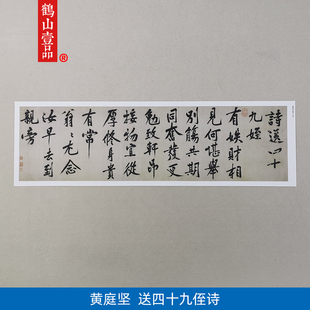 鹤山壹品®
詩送四十
九姪
有姪財相
見何堪舉
別觴共期
同奮發更
勉致軒昂
接物宜從
厚修身貴
有常
翁〻尤念
汝早去到
親旁
黄庭坚 送四十九侄诗